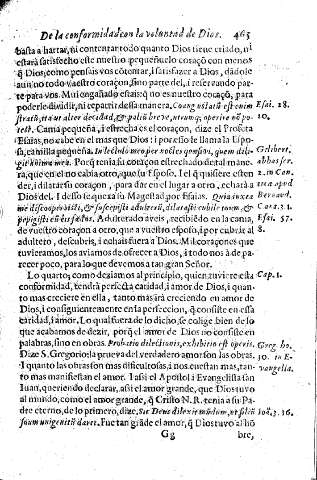 De la conformidad con la voluntad de Dios. 465
basta a hartar, ni contentar todo quanto Dios tiene criado, ni
estará satisfecho este nuestro pequeñuelo coraçō con menos
q̃ Dios; como pensais vos cōtentar, i satisfazer a Dios, dādole
aun no todo vuestro coraçon, sino parte del, i reservando par-
te para vos. Mui engañado estais: q̃ no es nuestro coraçō, para
poderle dividir, ni repartir desta manera, Coangustatū est enim Esai. 28.
stratū, ita ut alter decidat, & palliū breve, utrumq; operire nō po- 10.
test. Cama pequeña, i estrecha es el coraçon, dize el Profeta
Esaias, no cabe en el mas que Dios: i por esso le llama la Espo-
sa, camilla pequeña. In lectulo meo per noctes quæsivi, quem dili- Gilibert.
git anima mea. Porq̃ tenia su coraçon estrechado de tal mane- abbas ser.
ra, que en el no cabia otro, que su Esposo. I el q̃ quisiere esten 2. in Can
der, i dilatar su coraçon, para dar en el lugar a otro, echará a tica apud
Dios del. I desso se quexa su Magestad por Esaias. Quia iuxta Bernard.
me discooperuisti, & suscepisti adulterū, dilatasti cubile tuum, & Cāt. 3. 1.
pepigisti cū eis fœdus. Adulterado aveis, recibiēdo en la cama, Esai. 57.
de vuestro coraçon a otro, que a vuestro esposo, i por cubrir al 8.
adultero, descubris, i echais fuera a Dios. Mil coraçones que
tuvieramos, los aviamos de ofrecer a Dios, i todo nos à de pa-
recer poco, para lo que devemos a tan gran Señor.
Lo quarto; como deziamos al principio, quien tuviere esta Cap. 1.
conformidad, tendrá perfecta caridad, i amor de Dios, i quan-
to mas creciere en ella, tanto mas irá creciendo en amor de
Dios, i consiguientemente en la perfeccion, q̃ consiste en essa
caridad, i amor. Lo qual fuera de lo dicho, se colige bien de lo
que acabamos de dezir, porq̃ el amor de Dios no consiste en
palabras, sino en obras. Probatio dilectionis, exhibitio est operis, Greg. ho.
Dize S. Gregorio; la prueva del verdadero amor son las obras. 30. in E-
I quanto las obras son mas dificultosas, i nos cuestan mas, tan- vangelia.
to mas manifiestan el amor. I assi el Apostol, i Evangelista san
Iuan, queriendo declarar, assi el amor grande, que Dios tuvo
al mundo, como el amor grande, q̃ Cristo N. R. tenia a su Pa-
dre eterno, de lo primero, dize, Sic Deus dilexit mūdum, ut filiū Ioā. 3. 16.
suum unigenitū daret. Fue tan grāde el amor, q̃ Dios tuvo al hō
Gg bre,